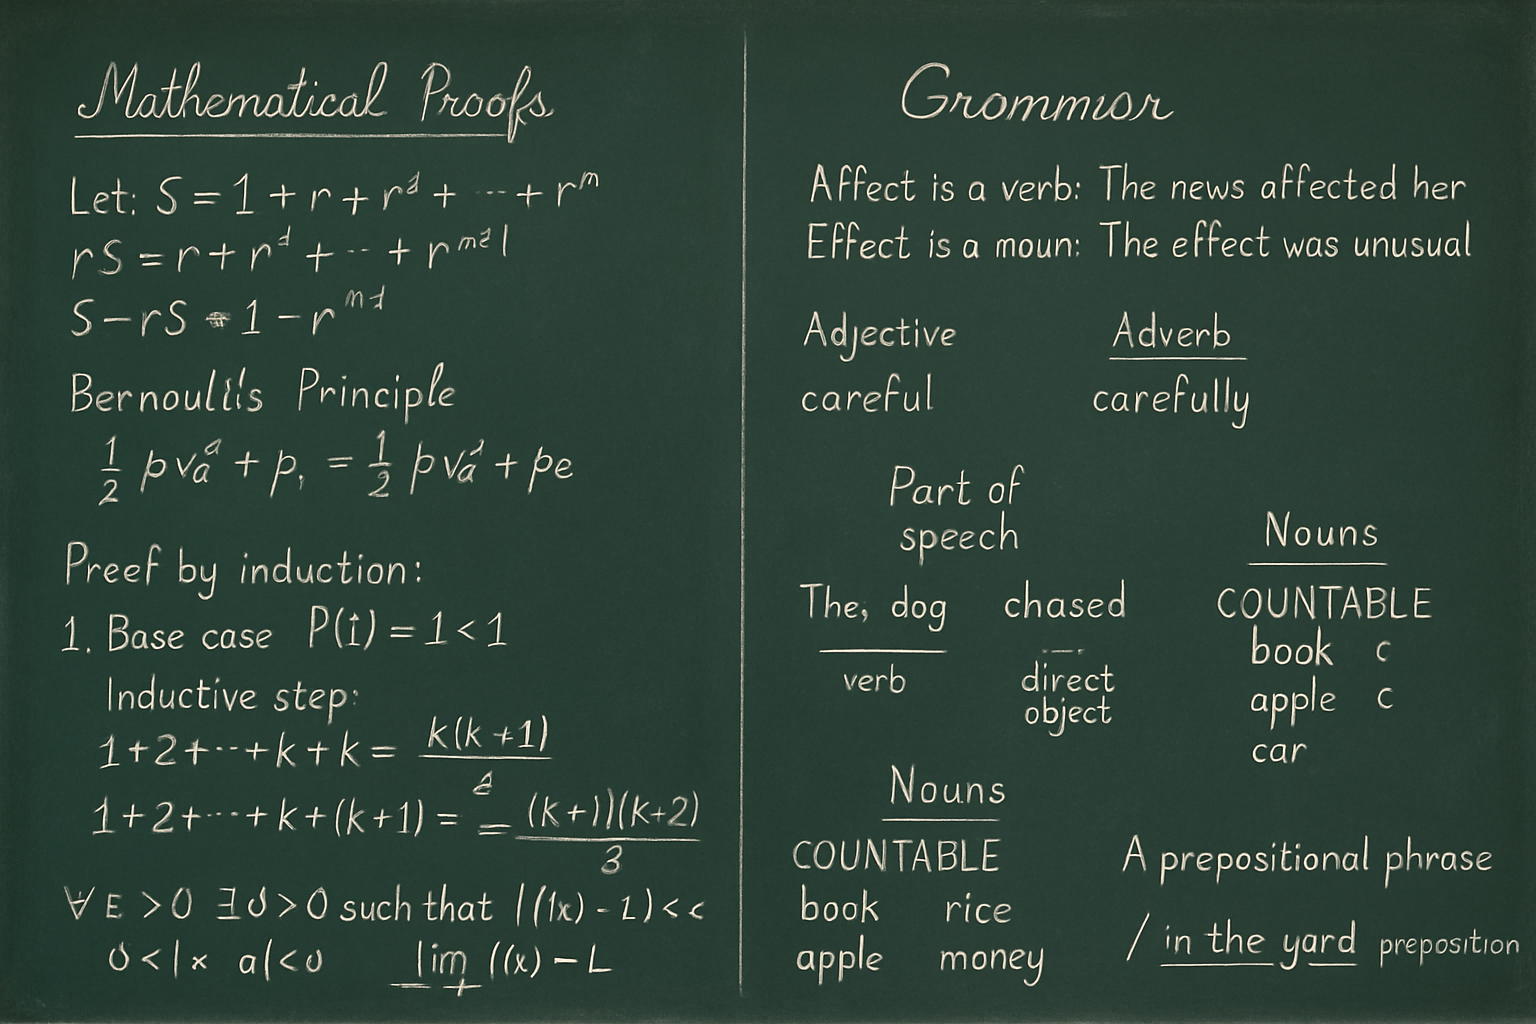 Mathematical Proofs
Let: S = 1 + r + r^d + ... + r^m
rS = r + r^d + ... + r^m2 1
S − rS = 1 − r^md
Bernoulli's Principle
1/2 pva^a + p, = 1/2 pva^2 + pe
Preef by induction:
1. Base case P(1) = 1 < 1
Inductive step:
1 + 2 + ... + k + k = k(k +1)/2
1 + 2 + ... + k + (k + 1) = = (k+))(k+2)/3
∀ E > 0 ∃ δ > 0 such that |((x) - L) < c
0 < | x a| < 0 lim ((x) − L
Grommor
Affect is a verb: The news affected her
Effect is a moun: The effect was unusual
Adjective Adverb
careful carefully
Part of
speech
The, dog chased
verb direct
object
Nouns
COUNTABLE
book c
apple c
car
Nouns
COUNTABLE
book rice
apple money
A prepositional phrase
/ in the yard preposition